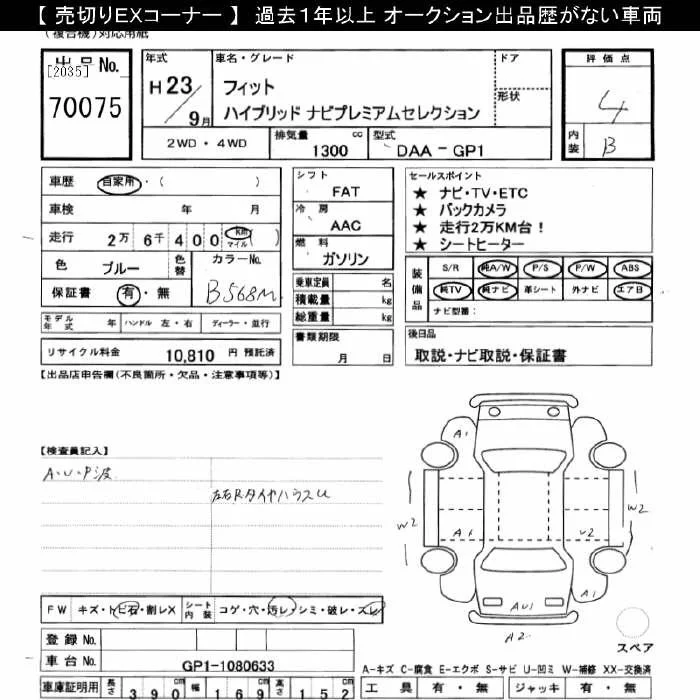 【 売切りEXコーナー 】 過去1年以上 オークション出品歴がない車両
(複合機)対応用紙
出品No.
[2035]
70075
年式
H 23/9月
車名・グレード
フィット
ハイブリッド ナビプレミアムセレクション
ドア
形状
評価点
4
内装
B
2WD・4WD
排気量 1300 cc
型式 DAA-GP1
車歴 自家用・( )
車検 年 月
走行 2万 6千 400 Km マイル ( )
色 ブルー
色替
カラーNo.
B568M
保証書 有・無
シフト
FAT
冷房
AAC
燃料
ガソリン
セールスポイント
★ ナビ・TV・ETC
★ バックカメラ
★ 走行2万KM台!
★ シートヒーター
装備品
S/R 純A/W P/S P/W ABS
純TV 純ナビ 革シート 外ナビ エアB
ナビ型番:
乗車定員 名
積載量 kg
総重量 kg
モデル年式 年 ハンドル 左・右 ディーラー・並行
書類期限
月 日
後日品
取説・ナビ取説・保証書
リサイクル料金 10,810 円 預託済
【出品店申告欄(不良箇所・欠品・注意事項等)】
【検査員記入】
A・U・P波
左右RタイヤハウスU
A1
W2
W2
A1
U2
AU1
A2
スペア
FW キズ・トビ石・割レX
シート内装 コゲ・穴・汚レ・シミ・破レ・スレ
登録 No.
車台 No. GP1-1080633
A-キズ C-腐食 E-エクボ S-サビ U-凹ミ W-補修 XX-交換済
車庫証明用 長さ 390 cm 幅 169 cm 高さ 152 cm
工具 有・無 ジャッキ 有・無